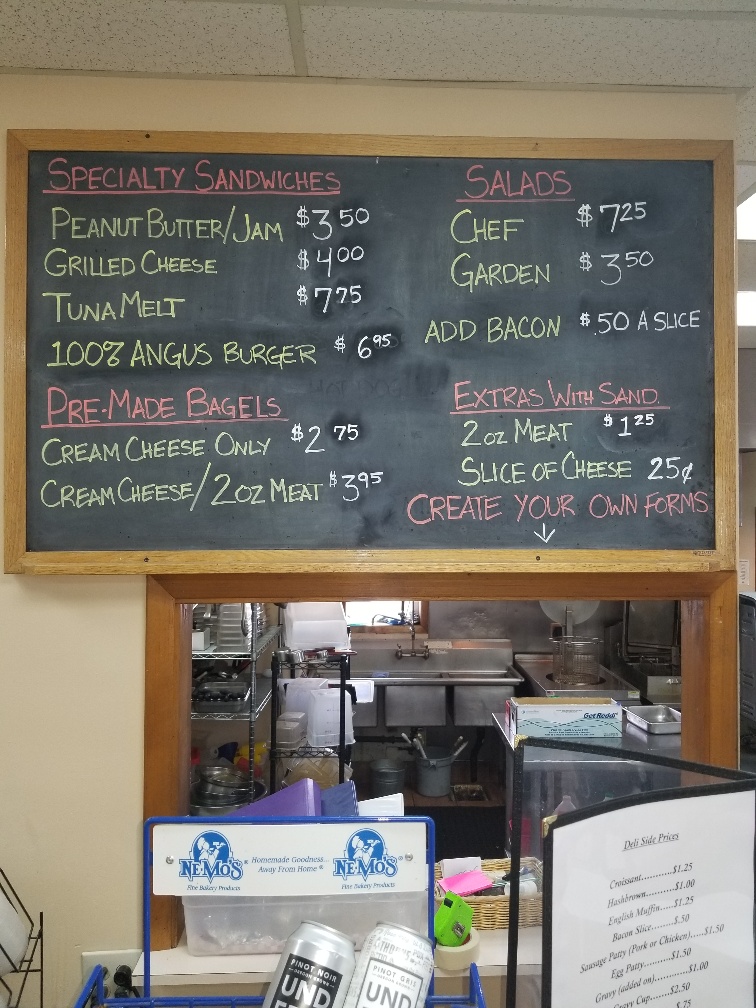 SPECIALTY SANDWICHES
PEANUT BUTTER/JAM $3.50
GRILLED CHEESE $4.00
TUNA MELT $7.75
100% ANGUS BURGER $6.95
PRE-MADE BAGELS
CREAM CHEESE ONLY $2.75
CREAM CHEESE/2OZ MEAT $3.95
SALADS
CHEF $7.25
GARDEN $3.50
ADD BACON $.50 A SLICE
EXTRAS WITH SAND.
2OZ MEAT $1.25
SLICE OF CHEESE 25¢
CREATE YOUR OWN FORMS
Get Reddi
NE-MO'S
Fine Bakery Products
Homemade Goodness...
Away From Home
NE-MO'S
Fine Bakery Products
PINOT NOIR
UND
PINOT GRIS
UND
Deli Side Prices
Croissant..........$1.25
Hashbrown..........$1.00
English Muffin.....$1.25
Bacon Slice......$.50
Sausage Patty (Pork or Chicken).....$1.50
Egg Patty.....$1.50
Gravy (added on).....$1.00
Gravy Cup....$2.50